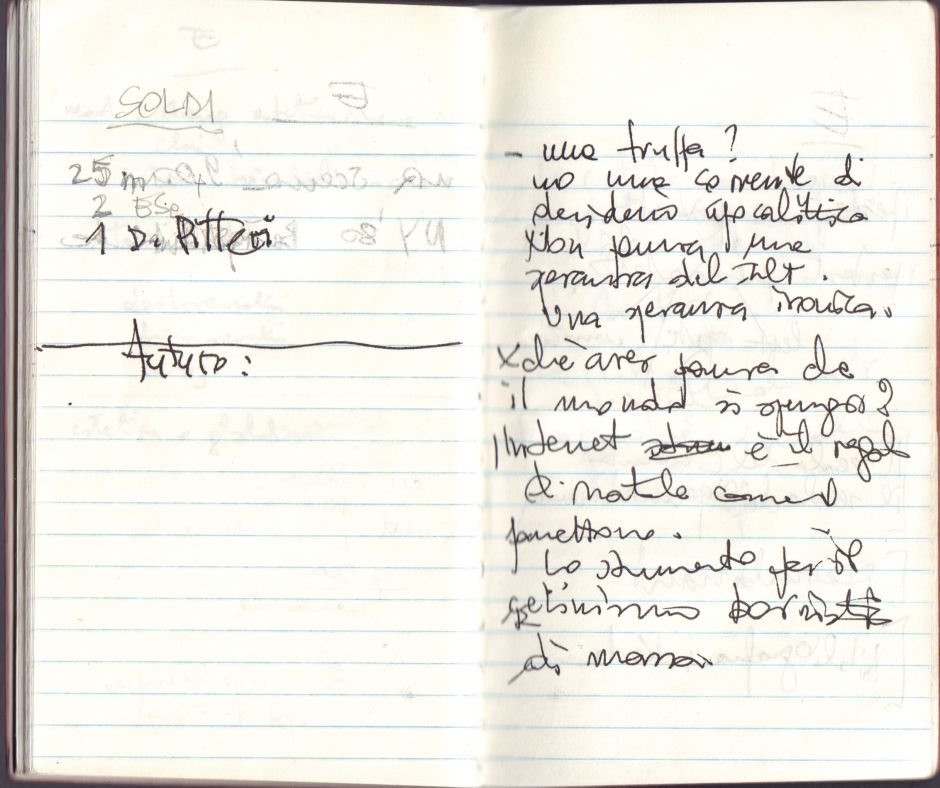 SOLDI
25 m
2 ESe
1 Da Pitteri
Futuro:
- una truffa?
no una corrente di
desiderio apocalittico
Non paura, una
speranza del
Una speranza ironica.
x chè aver paura che
il mondo si spenga?
Internet è il regalo
di natale come il
panettone.
Lo strumento per il
cretinismo
di massa